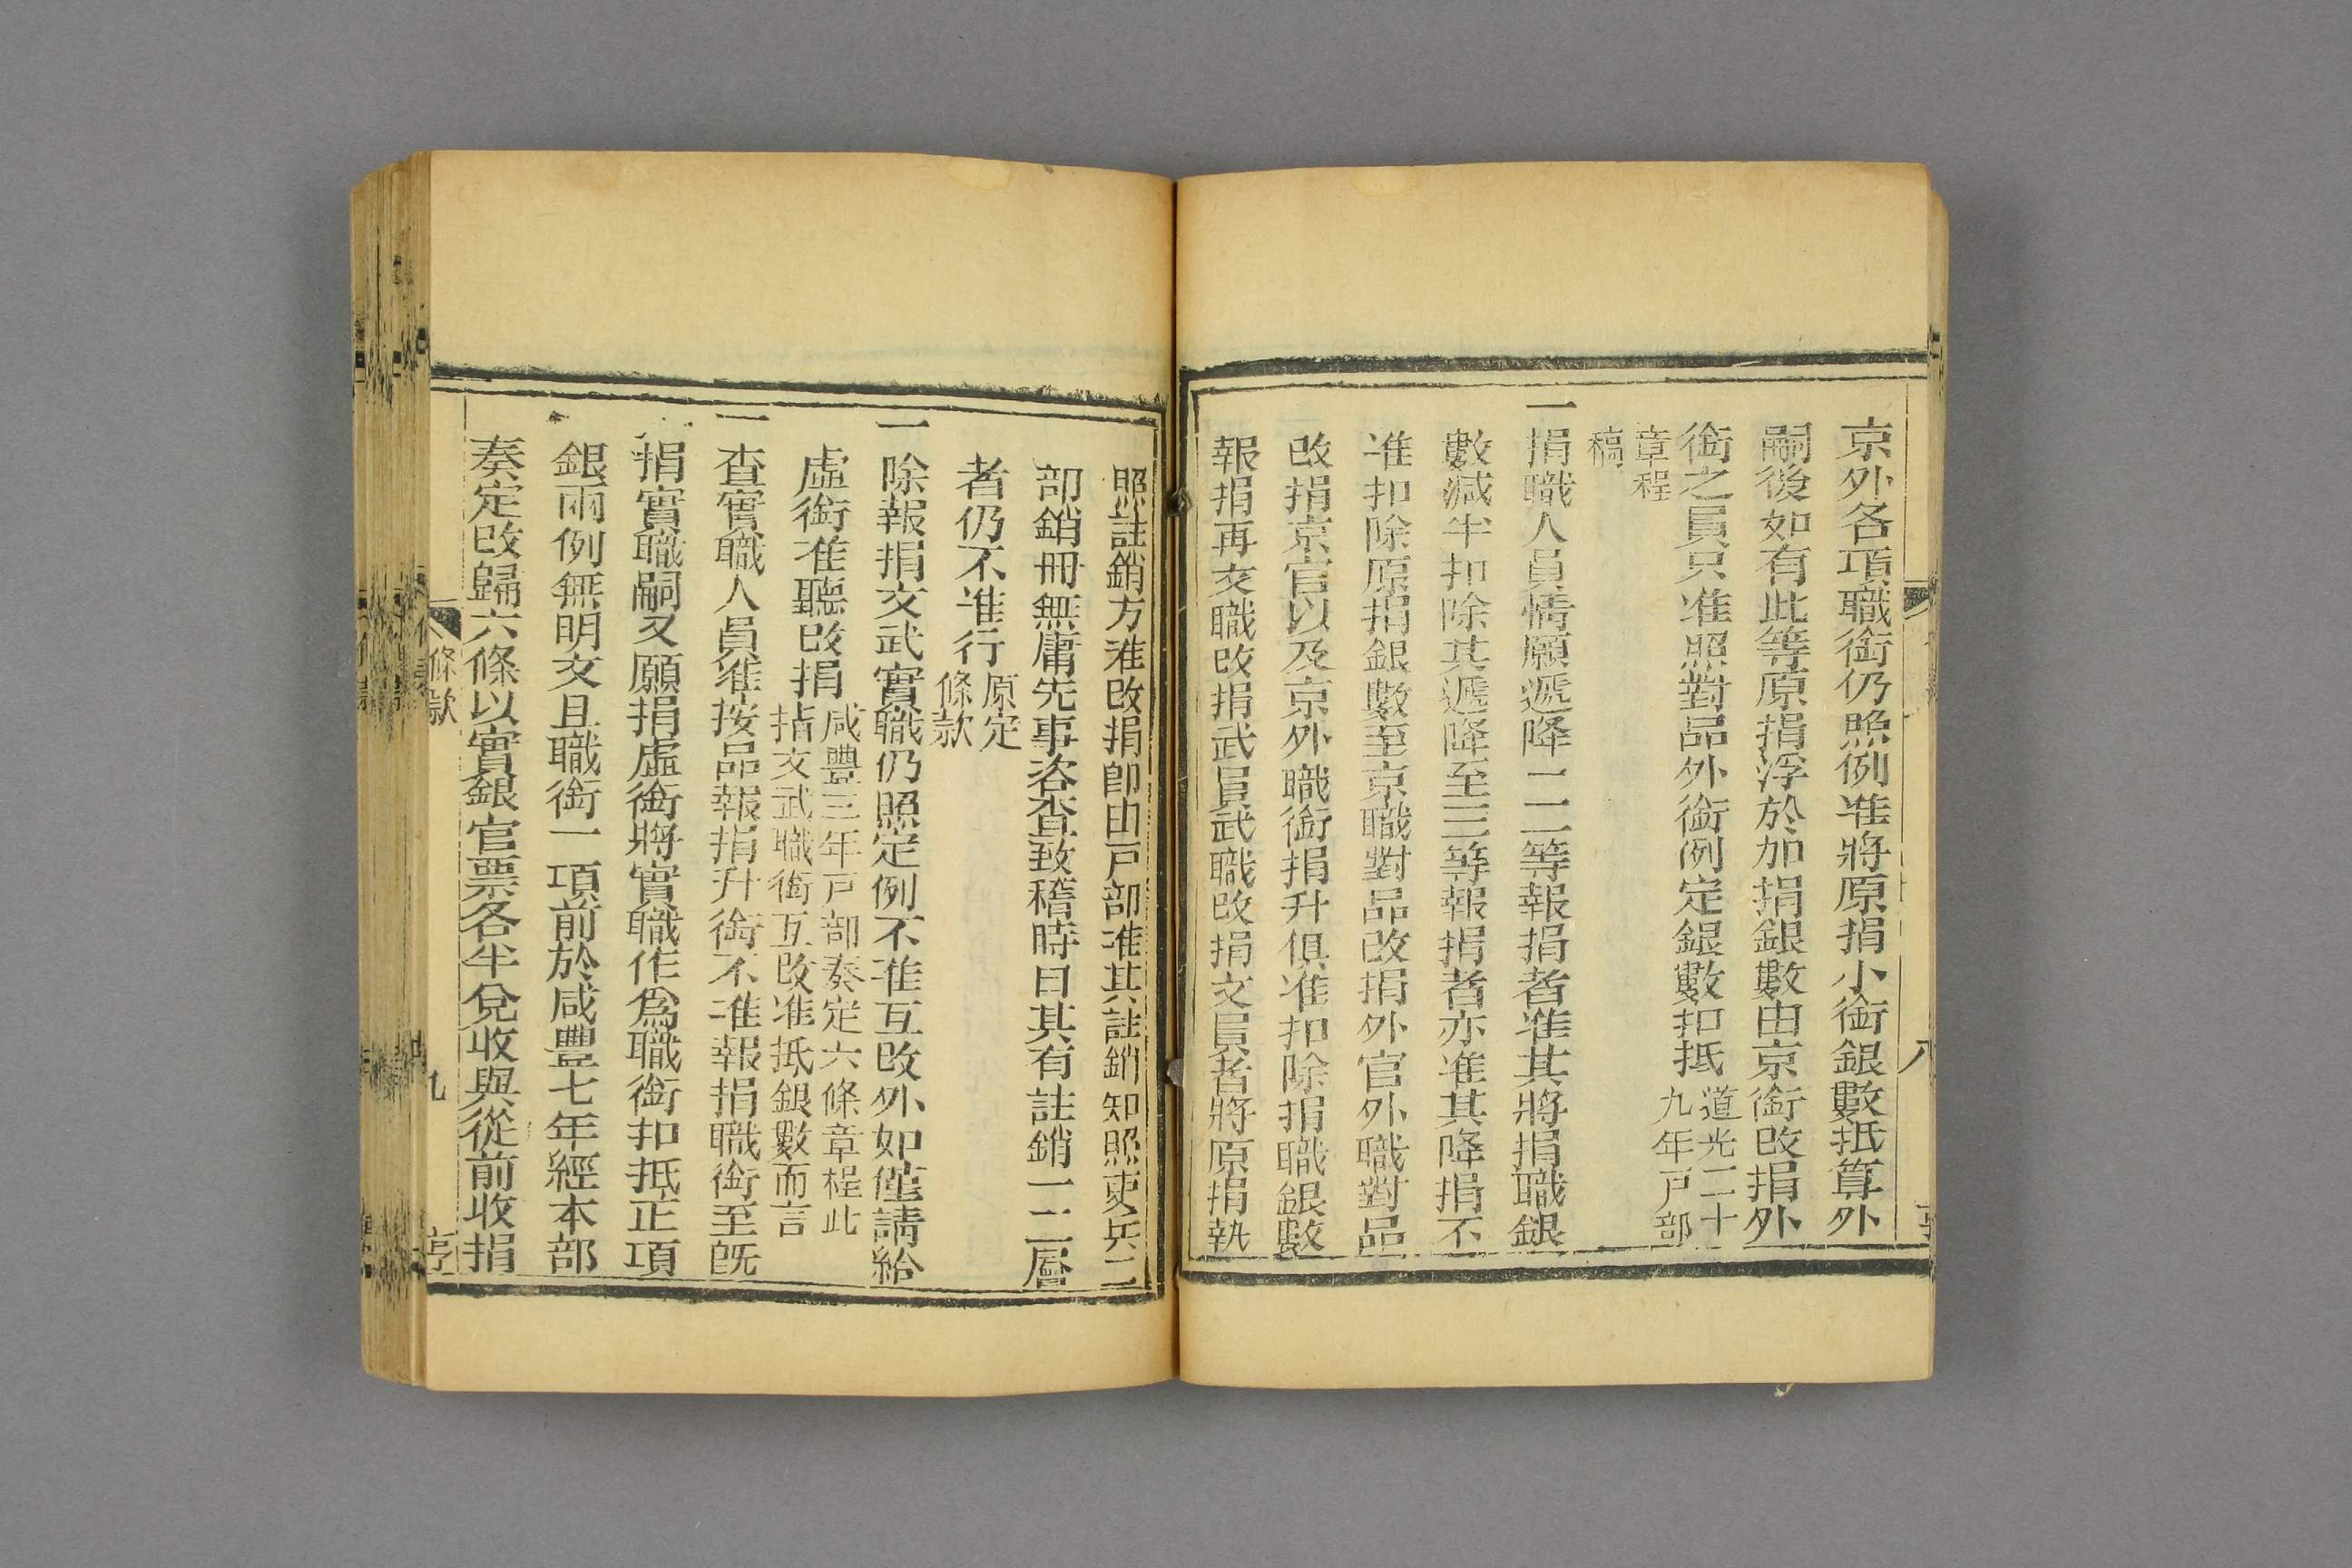 京外各項職銜仍照例准將原捐小銜銀數抵算外
嗣後如有此等原捐浮於加捐銀數由京銜改捐外
銜之員只准照對品外銜例定銀數扣抵道光二十
九年戶部
章程
稿
一捐職人員情願遞降一二等報捐者准其將捐職銀
數減半扣除其遞降至三等報捐者亦准其降捐不
准扣除原捐銀數至京職對品改捐外官外職對品
改捐京官以及京外職銜捐升俱准扣除捐職銀數
報捐再文職改捐武員武職改捐文員者將原捐執
照註銷方准改捐卽由戶部准其註銷知照吏兵二
部銷冊無庸先事咨查致稽時日其有註銷一二層
者仍不准行原定
條款
一除報捐文武實職仍照定例不准互改外如僅請給
虛銜准聽改捐咸豐三年戶部奏定六條章程此
指文武職銜互改准抵銀數而言
一查實職人員准按品報捐升銜不准報捐職銜至旣
捐實職嗣又願捐虛銜將實職作爲職銜扣抵正項
銀兩例無明文且職銜一項前於咸豐七年經本部
奏定改歸六條以實銀官票各半兌收與從前收捐
條款
九
亨